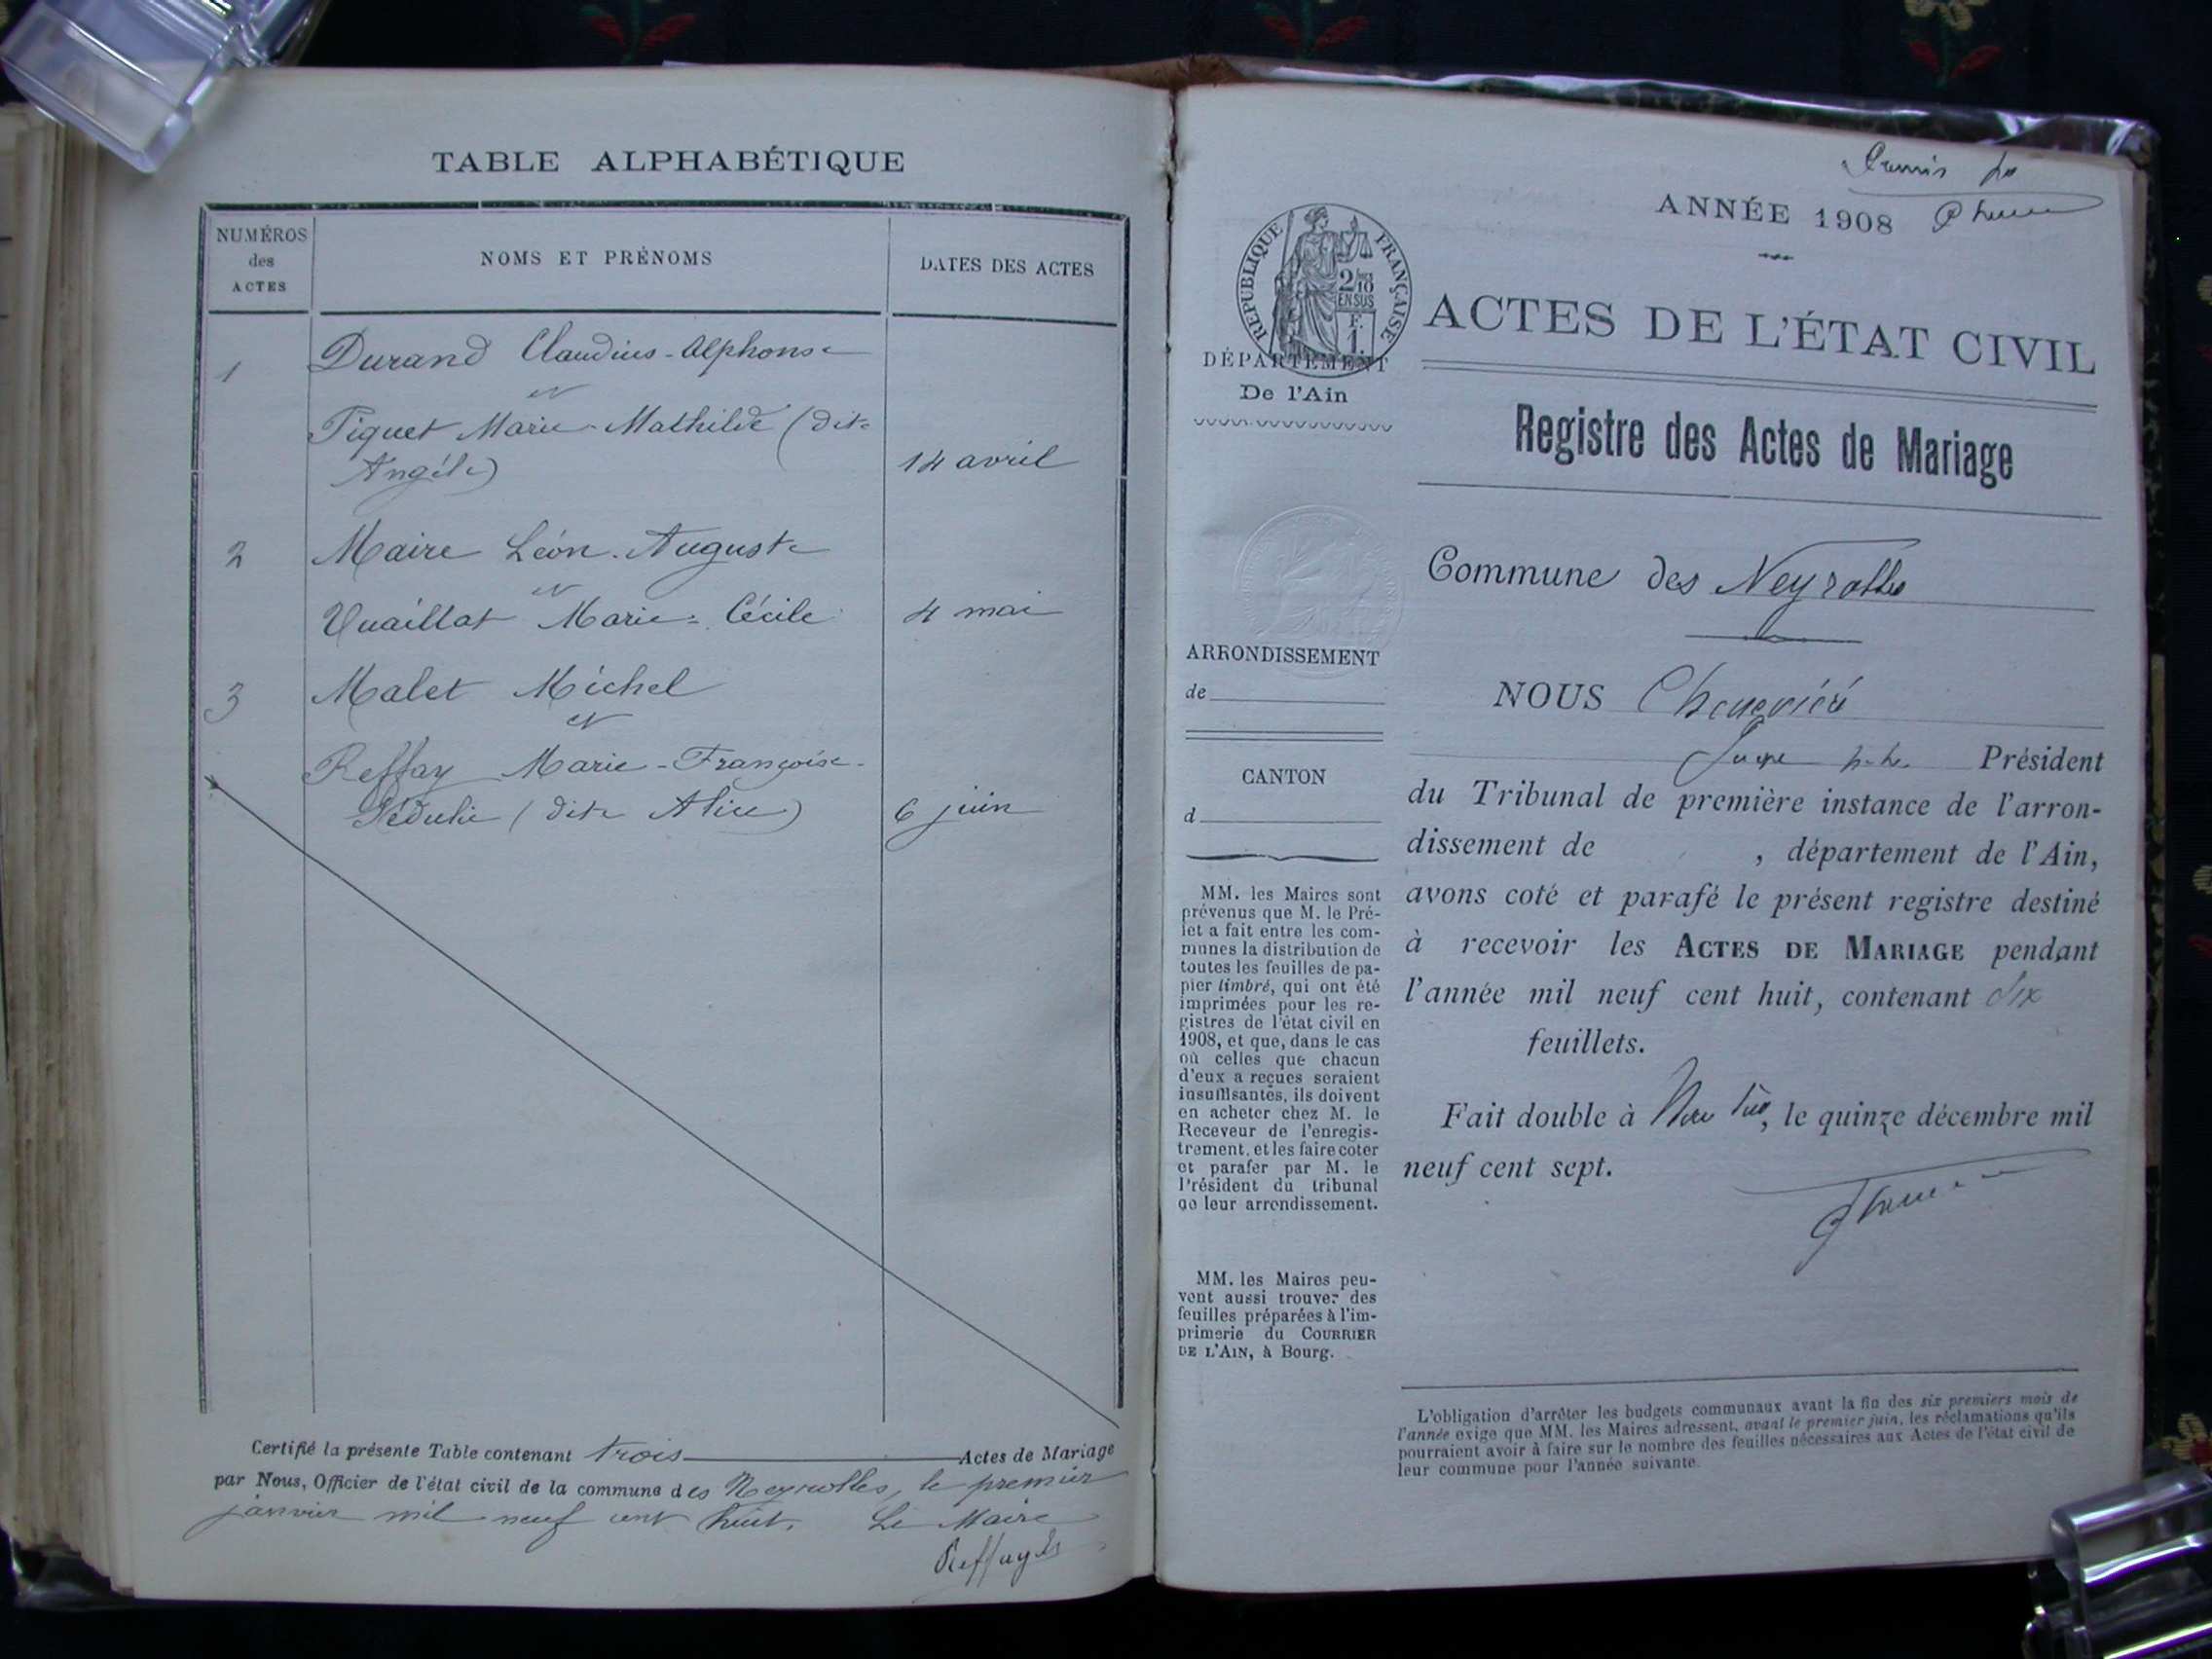 TABLE ALPHABÉTIQUE
NUMÉROS
des
ACTES
NOMS ET PRÉNOMS
DATES DES ACTES
1 Durand Claudius-Alphonse
et
Piquet Marie-Mathilde (dite
Angèle) 14 avril
2 Maire Léon-Auguste
et
Vuaillat Marie-Cécile 4 mai
3 Malet Michel
et
Reffay Marie-Françoise-
(dite Alice) 6 juin
Certifié la présente Table contenant trois Actes de Mariage
par Nous, Officier de l'état civil de la commune des Neyrolles, le premier
janvier mil neuf cent huit. Le Maire
ANNÉE 1908
RÉPUBLIQUE FRANÇAISE
2/10
EN SUS
F.
1.
DÉPARTEMENT
De l'Ain
ACTES DE L'ÉTAT CIVIL
Registre des Actes de Mariage
Commune des Neyrolles
ARRONDISSEMENT
de
CANTON
d
MM. les Maires sont
prévenus que M. le Pré-
fet a fait entre les com-
munes la distribution de
toutes les feuilles de pa-
pier timbré, qui ont été
imprimées pour les re-
gistres de l'état civil en
1908, et que, dans le cas
où celles que chacun
d'eux a reçues seraient
insuffisantes, ils doivent
en acheter chez M. le
Receveur de l'enregis-
trement, et les faire coter
et parafer par M. le
Président du tribunal
de leur arrondissement.
MM. les Maires peu-
vent aussi trouver des
feuilles préparées à l'im-
primerie du COURRIER
DE L'AIN, à Bourg.
NOUS
Président
du Tribunal de première instance de l'arron-
dissement de , département de l'Ain,
avons coté et parafé le présent registre destiné
à recevoir les ACTES DE MARIAGE pendant
l'année mil neuf cent huit, contenant six
feuillets.
Fait double à , le quinze décembre mil
neuf cent sept.
L'obligation d'arrêter les budgets communaux avant la fin des six premiers mois de
l'année exige que MM. les Maires adressent, avant le premier juin, les réclamations qu'ils
pourraient avoir à faire sur le nombre des feuilles nécessaires aux Actes de l'état civil de
leur commune pour l'année suivante.